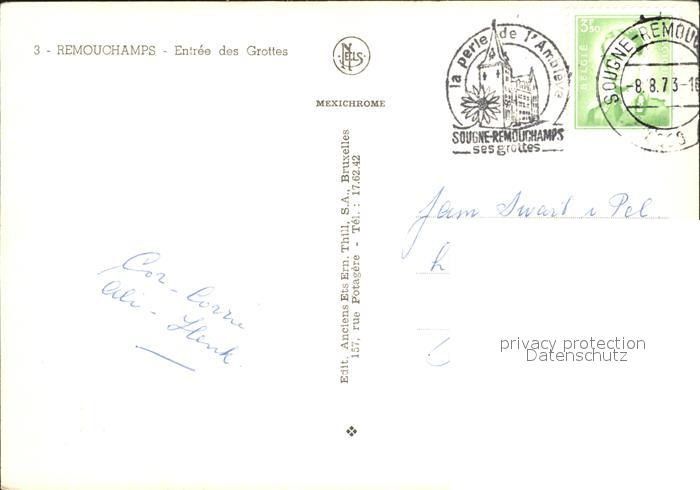 3 - REMOUCHAMPS - Entrée des Grottes
NELS
MEXICHROME
Edit. Anciens Ets Ern. Thill, S.A., Bruxelles
157, rue Potagère - Tél. : 17.62.42
la perle de l'Amblève
SOUGNE-REMOUCHAMPS
ses grottes
3F50
BELGIE
SOUGNE-REMOUC
-8.8.73-16
Fam Swart
h
Cor - Corrie
Ali - Henk
privacy protection
Datenschutz